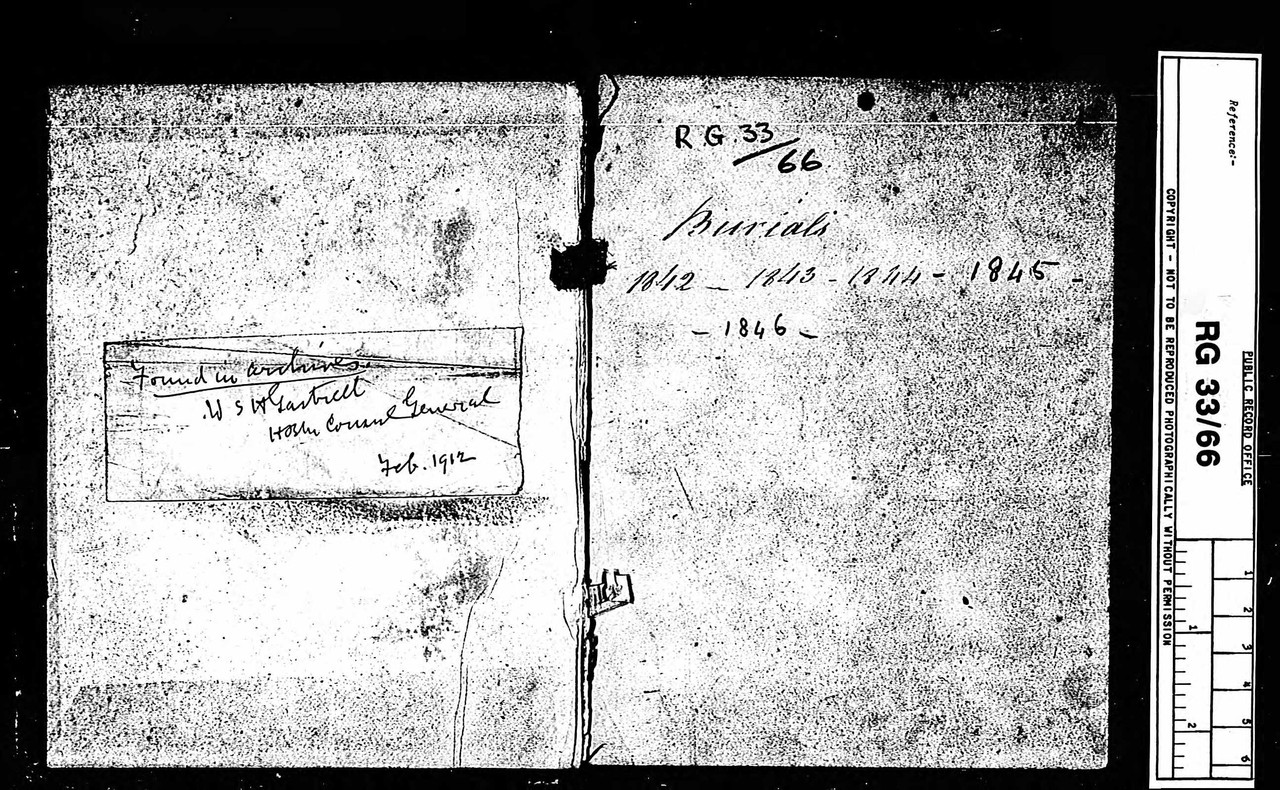 Found in archives
W S H Gastrell
HBM Consul General
Feb. 1912
R G. 33/66
Burials
1842 - 1843 - 1844 - 1845 -
- 1846 -
Reference:-
PUBLIC RECORD OFFICE
RG 33/66
COPYRIGHT - NOT TO BE REPRODUCED PHOTOGRAPHICALLY WITHOUT PERMISSION
1 2 3 4 5 6
1 2